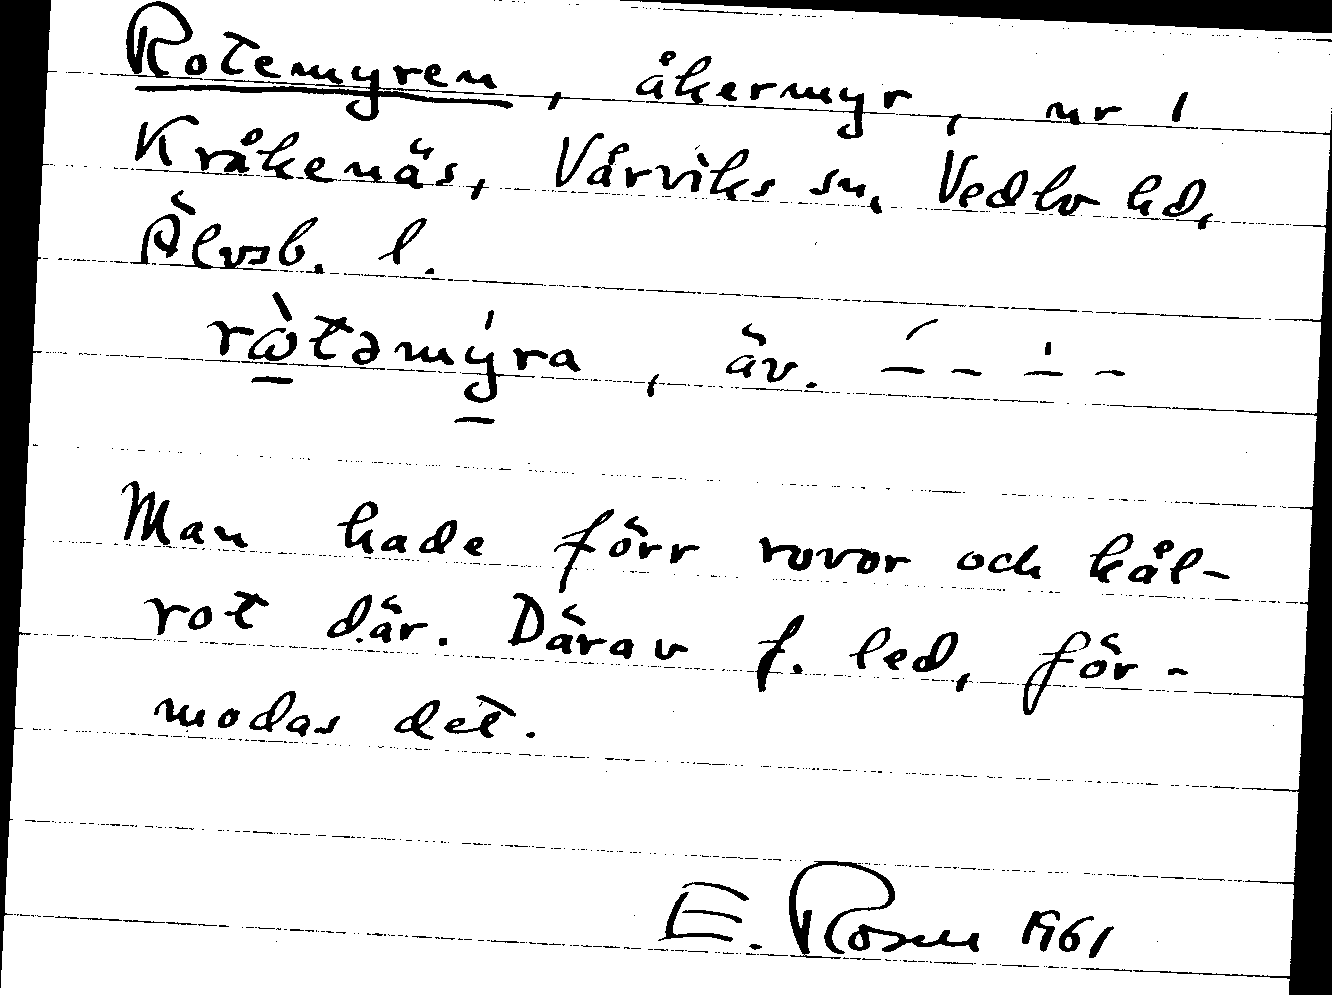 Rotemyren, åkermyr, nr 1
Kråkenäs, Vårviks sn, Vedbo hd,
Älvsb. l.
rὼtəmýra, äv. ́– – –̍ –
Man hade förr rovor och kål-
rot där. Därav f. led, för-
modas det.
E. Rosell 1961